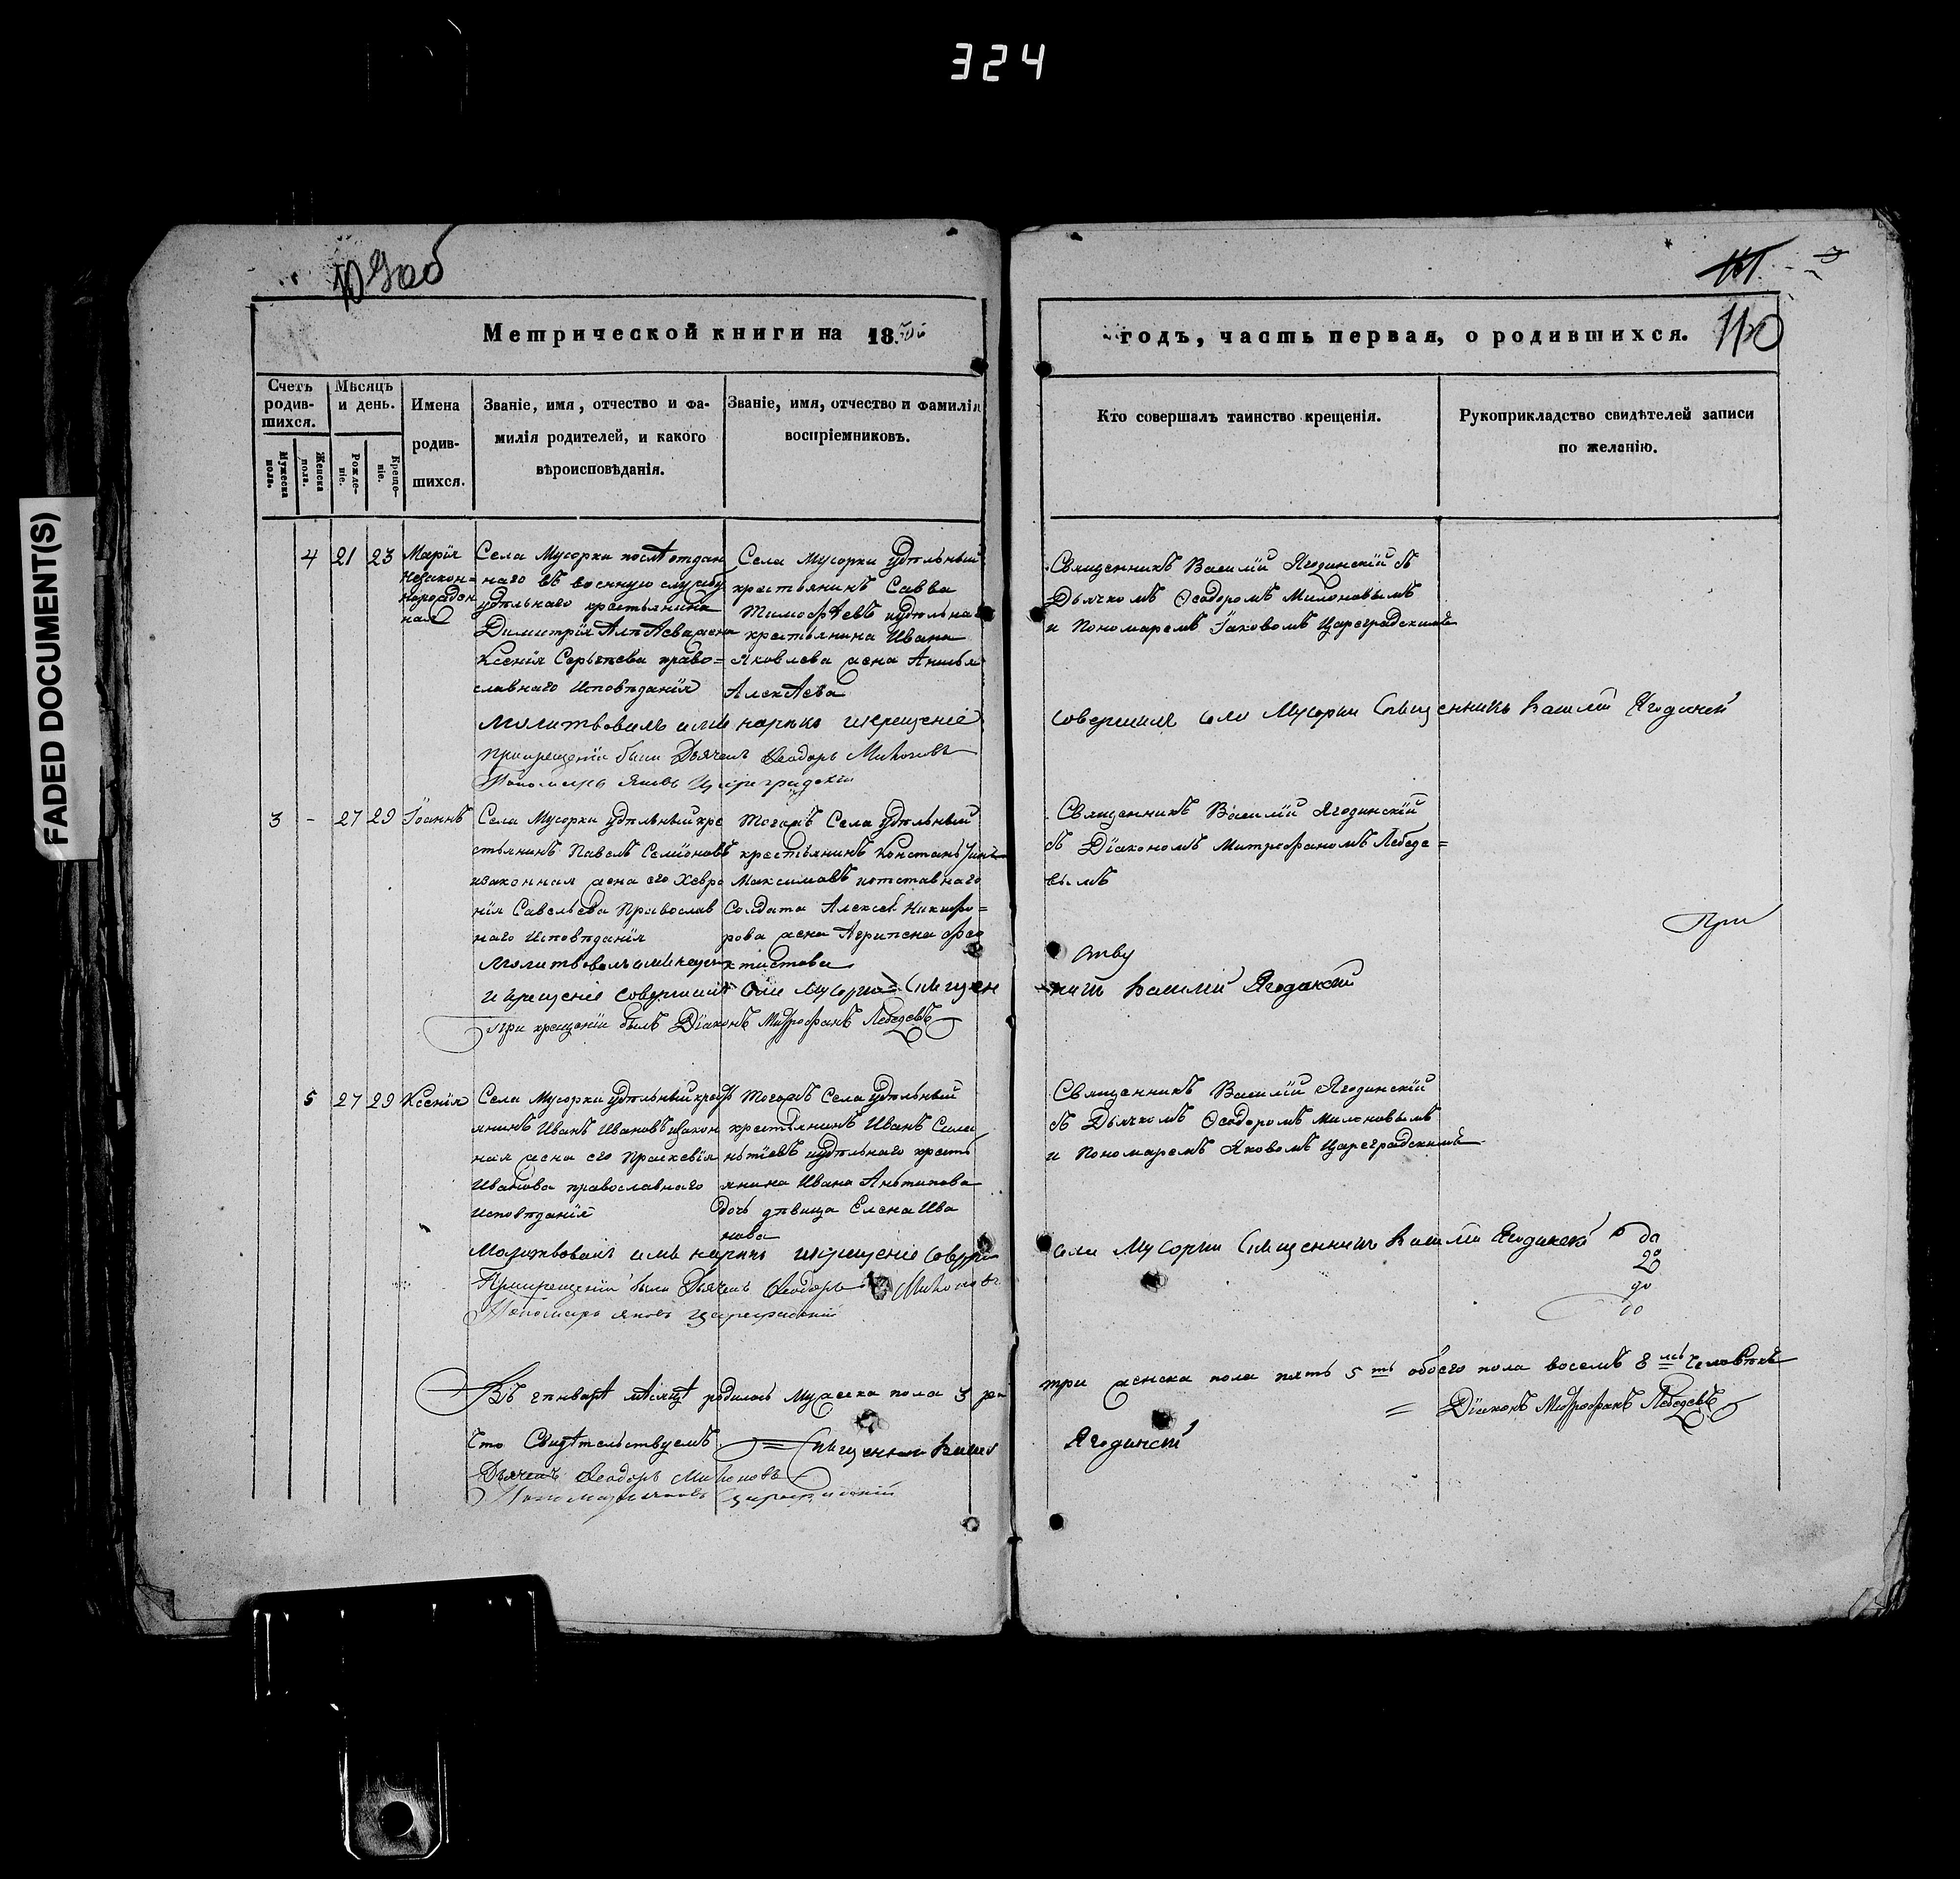 324
FADED DOCUMENT(S)
Метрической книги на 18
годъ, часть первая, о родившихся.
110
Счетъ родив-шихся.
Мужеска пола.
Женска пола.
Мѣсяцъ и день.
Рожде-ніе.
Креще-ніе.
Имена
родив-
шихся.
Званіе, имя, отчество и фа-
милія родителей, и какого
вѣроисповѣданія.
Званіе, имя, отчество и фамилія
воспріемниковъ.
Кто совершалъ таинство крещенія.
Рукоприкладство свидѣтелей записи
по желанію.
4 21 23
Марія
Незакон-
норожден
ная
Села Мусорки послѣ отдан
наго въ военную службу
удѣльнаго крестьянина
Димитрія жена
Ксенія Сергѣева право=
славнаго Исповѣданія
Села Мусорки Удѣльный
крестьянинъ Савва
Тимофѣевъ иудѣльна
крестьянина Ивана
Яковлева жена
Алексѣева
Священникъ Василій Ягодинскій съ
Дьячкомъ Ѳеодоромъ Милоновымъ
и Пономаремъ Іаковомъ Цареградскимъ
Молитвовалъ имя нарекъ икрещеніе
совершилъ села Мусорки Священникъ Василій Ягодинскій
Прикрещеніи были Дьячекъ Ѳеодоръ Милоновъ
Пономарь Яковъ Цареградскій
3 - 27 29 Іоаннъ
Села Мусорки удѣльный кре
стьянинъ Павелъ Семіоновъ
изаконная жена его Хевро
нія Савельева Православ
наго Исповѣданія
Тогожъ Села удѣльный
крестьянинъ Константинъ
Максимовъ иотставнаго
Солдата Алексѣя Никифо=
рова жена Агрипена Фео
ктистова
Священникъ Василій Ягодинскій
съ Діакономъ Митрофаномъ Лебеде=
вымъ
При
Молитвовалъ имя нарекъ
и крещеніе совершилъ Села Мусорки Священ
никъ Василій Ягодинскій
При крещеніи былъ Діаконъ Митрофанъ Лебедевъ
5 27 29 Ксенія
Села Мусорки удѣльный кресть
янинъ Иванъ Ивановъ изакон
ная жена его Праскевія
Иванова православнаго
исповѣданія
Тогожъ Села удѣльный
крестьянинъ Иванъ Сила
нтіевъ иудѣльнаго кресть
янина Ивана Антипова
дочь дѣвица Елена Ива
нова
Священникъ Василій Ягодинскій
съ Дьячкомъ Ѳеодоромъ Милоновымъ
и Пономаремъ Яковомъ Цареградскимъ
Молитвовалъ имя нарекъ икрещеніе соверши
села Мусорки Священникъ Василій Ягодинскій
Прикрещеніи были Дьячекъ Ѳеодоръ Милоновъ
Пономарь Яковъ Цареградскій
Въ генварѣ мѣсяцѣ родилось мужеска пола 3
три женска пола пять 5 ть обоего пола восемь 8 мь Человѣкъ
Діаконъ Митрофанъ Лебедевъ
Что Свидѣтельствуемъ Священникъ Василій
Ягодинскій
Дьячекъ Ѳеодоръ Милоновъ
Пономарь Яковъ Цареградскій